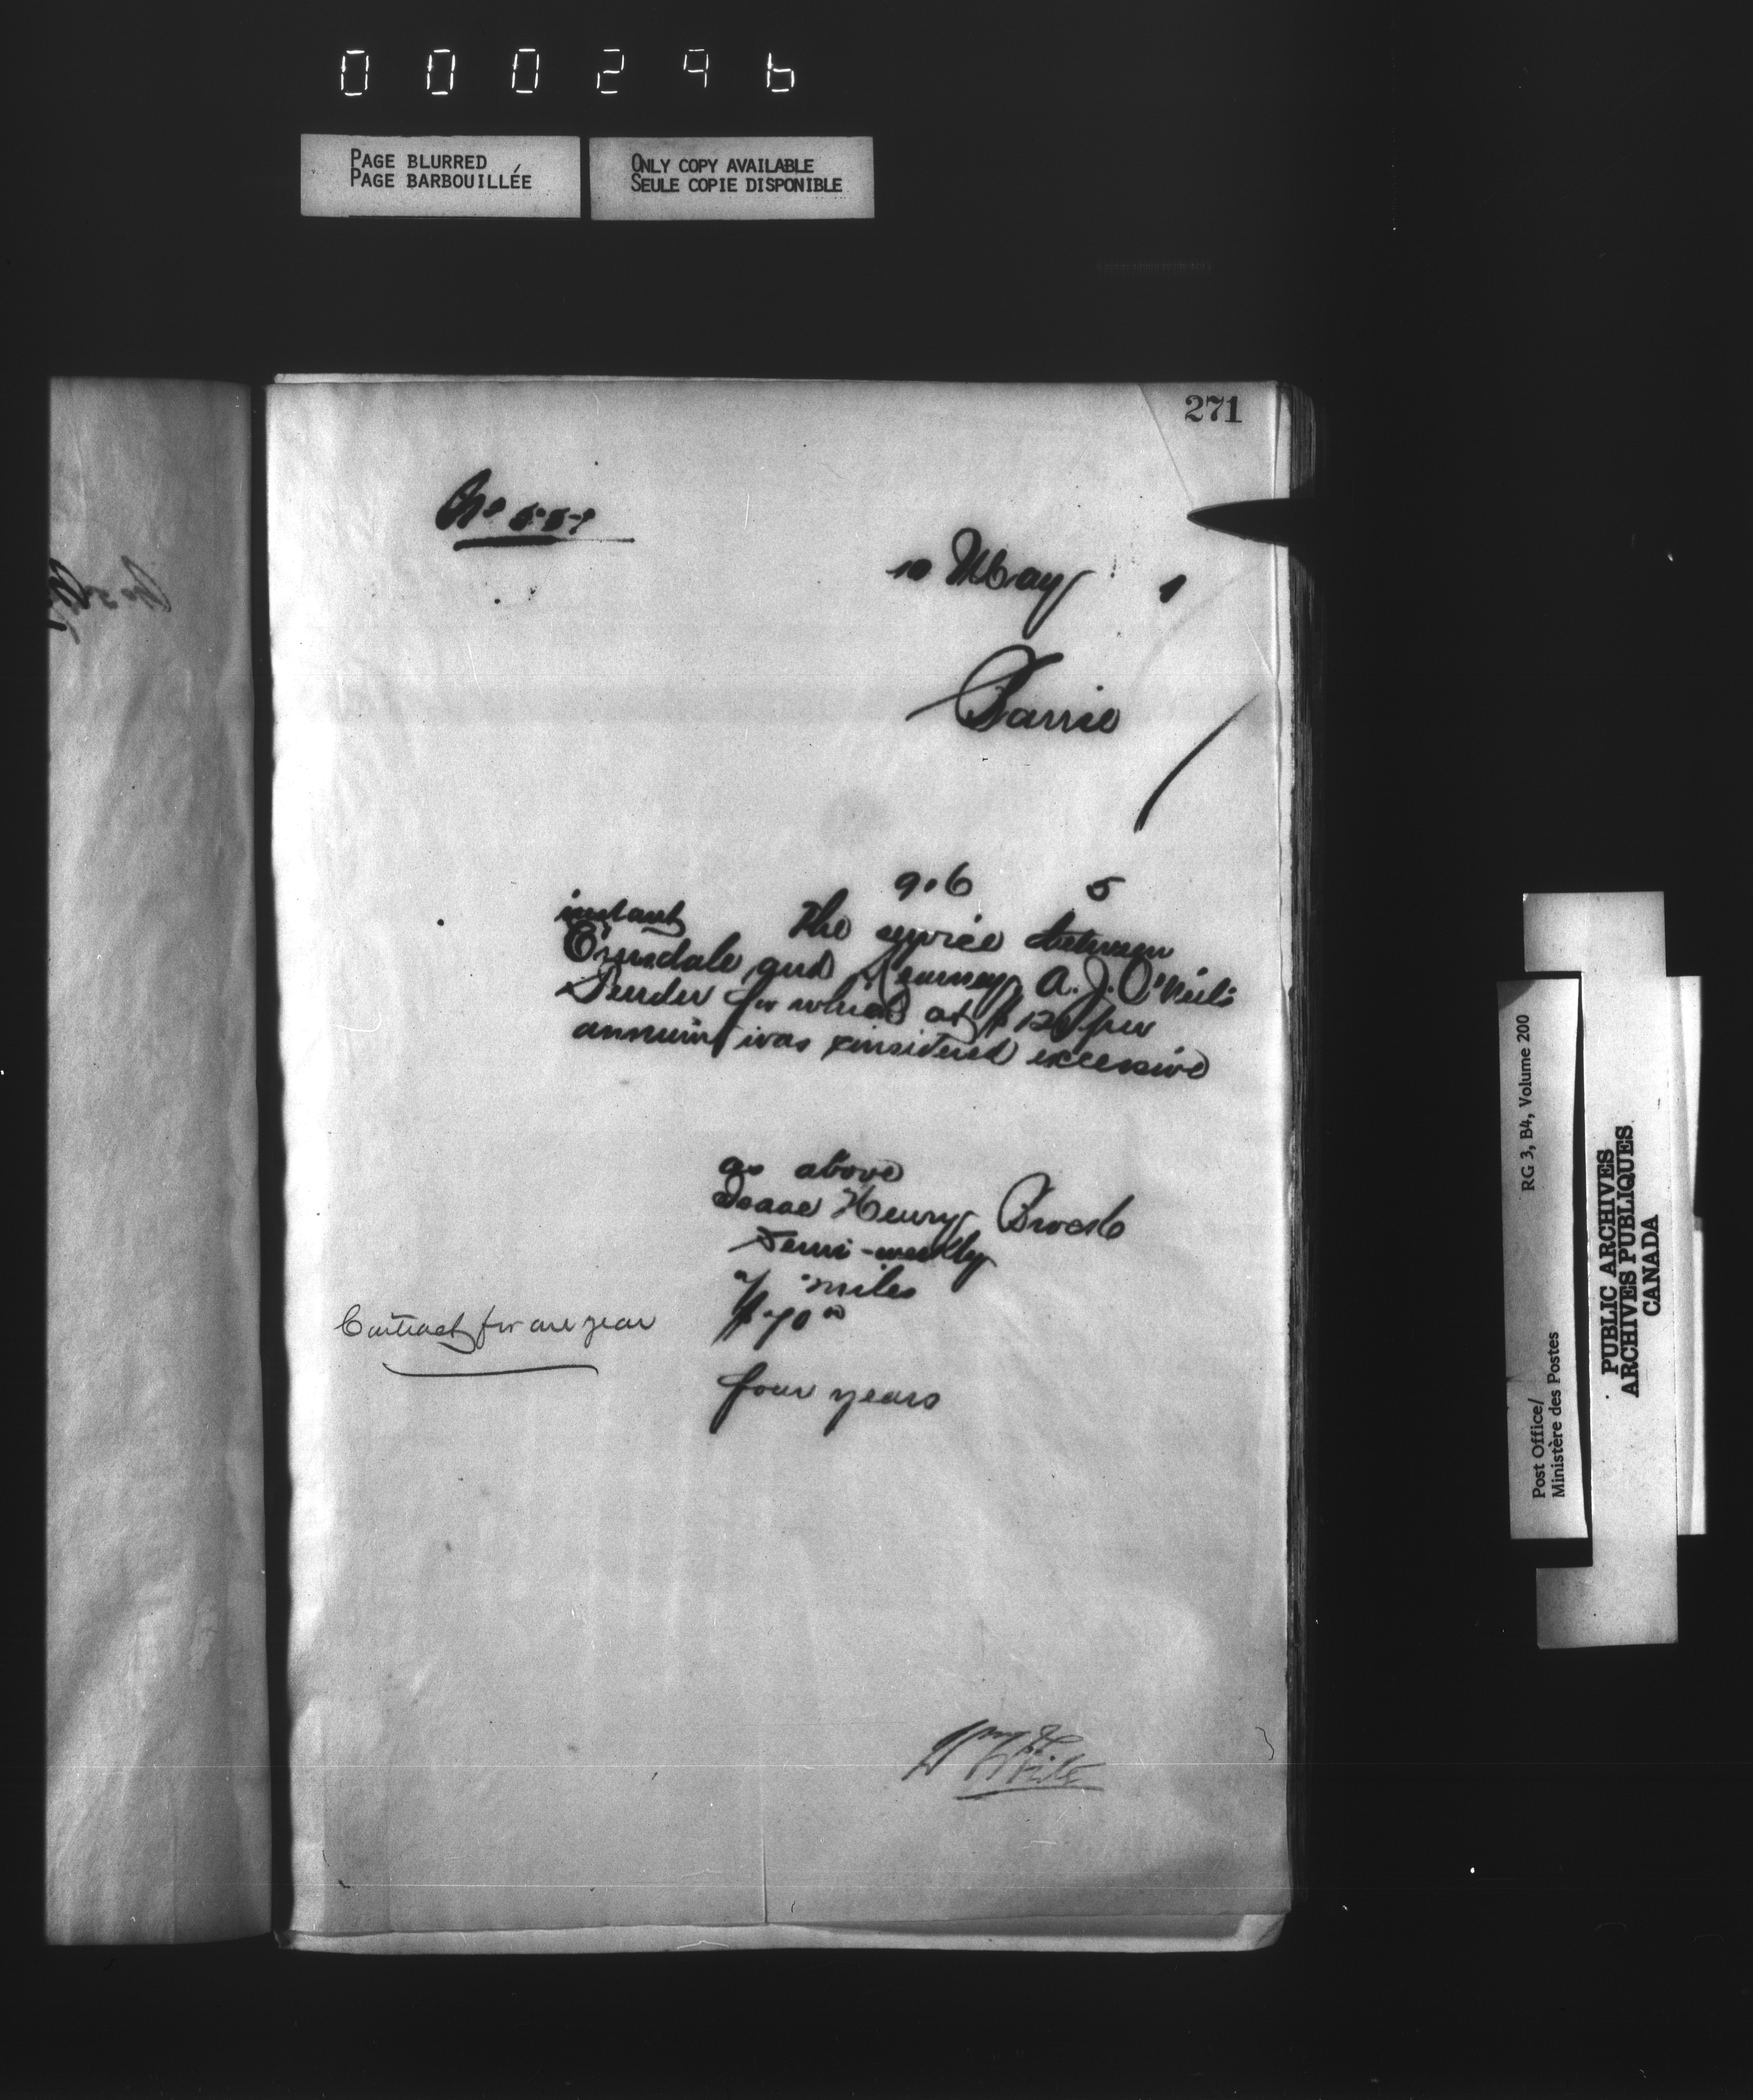 000296
PAGE BLURRED
PAGE BARBOUILLÉE
ONLY COPY AVAILABLE
SEULE COPIE DISPONIBLE
271
No 557
10 May 1
Barrie
906 5
instant The service between
Emsdale and Kearney A. J. O'Neil's
Tender for which at $120 per
annum was considered excessive
as above
Isaac Henry Brock
Semi-weekly
miles
$70 00
Contract for one year
four years
Wm White
RG 3, B4, Volume 200
Post Office/
Ministère des Postes
PUBLIC ARCHIVES
ARCHIVES PUBLIQUES
CANADA